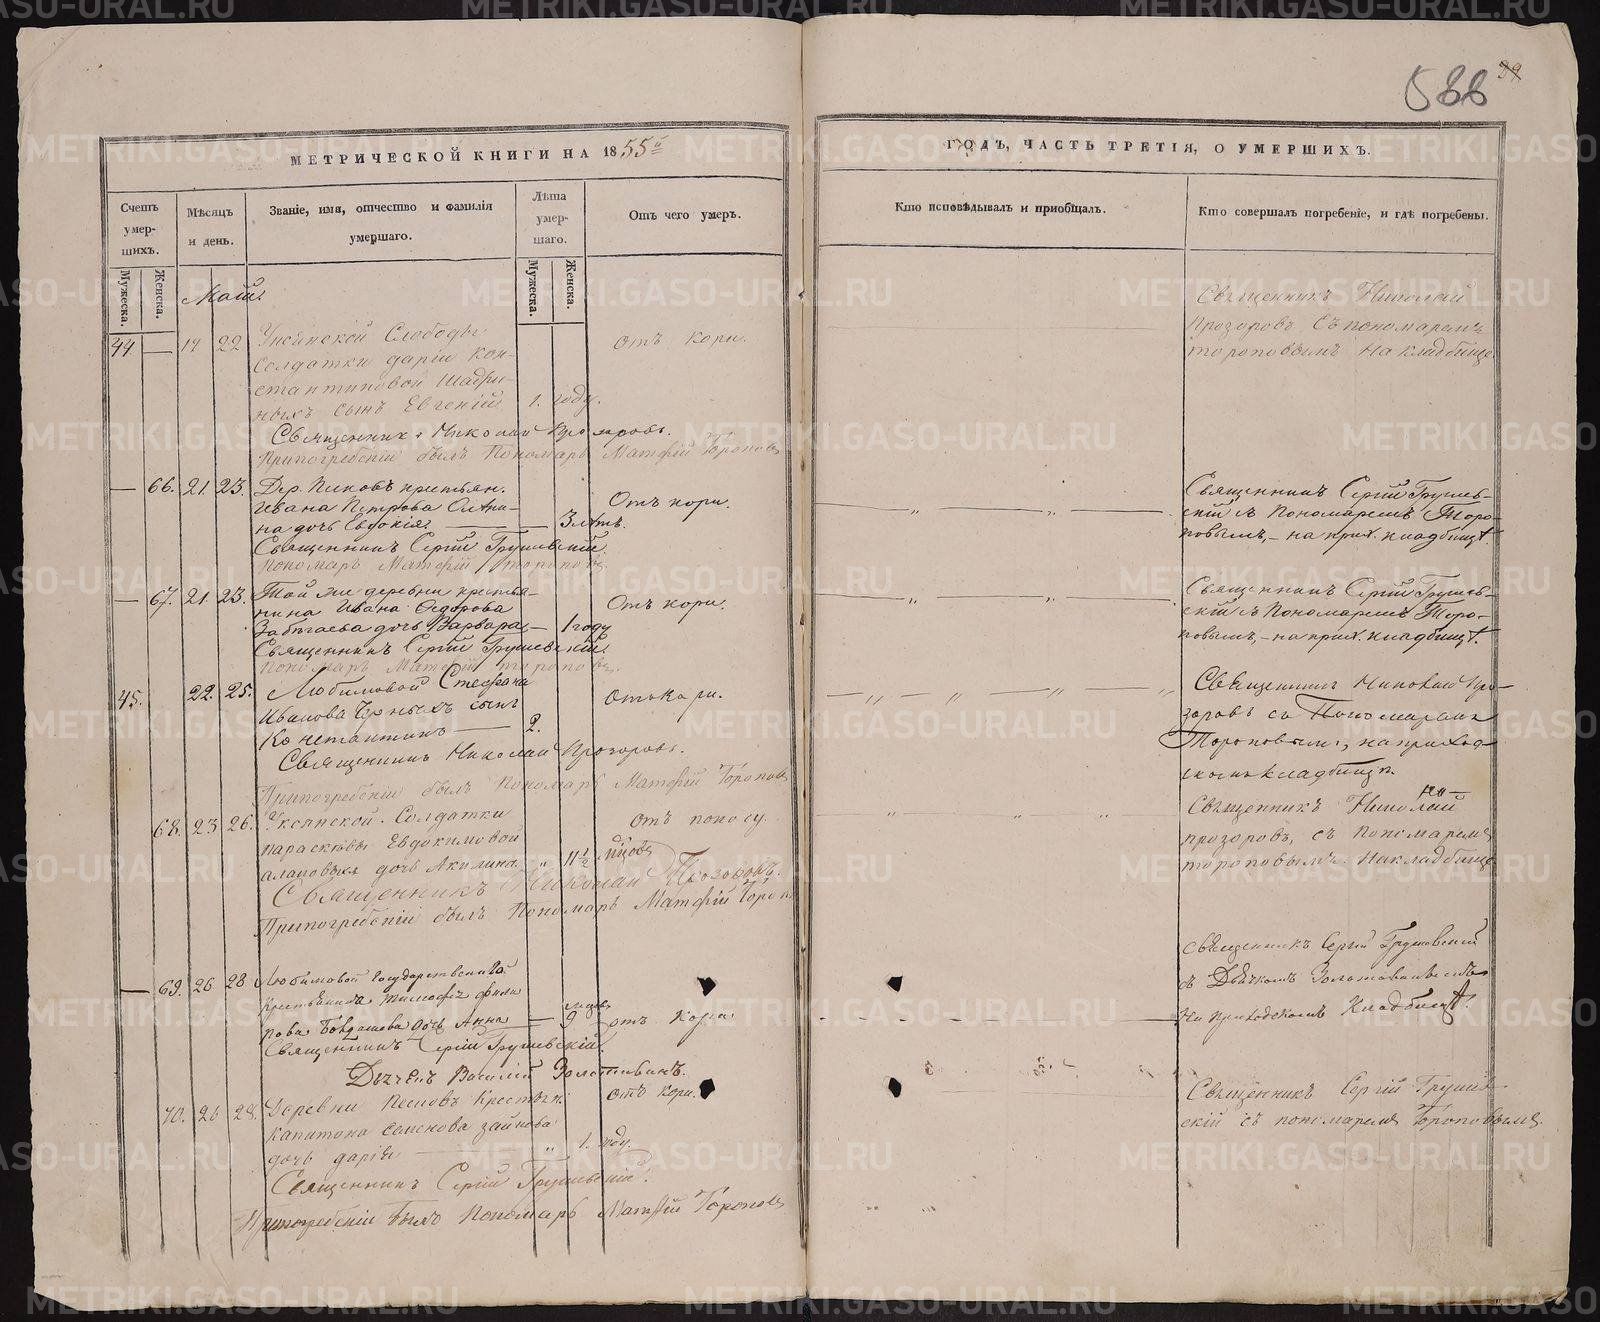 588 39
МЕТРИЧЕСКОЙ КНИГИ НА 1855й
ГОДЪ, ЧАСТЬ ТРЕТІЯ, О УМЕРШИХЪ.
Счетъ умер-шихъ.
Мужеска.
Женска.
Мѣсяцъ и день.
Званіе, имя, отчество и фамилія умершаго.
Лѣта умер-шаго.
Мужеска.
Женска.
Отъ чего умеръ.
Кто исповѣдывалъ и пріобщалъ.
Кто совершалъ погребеніе, и гдѣ погребены.
Маій
44 — 19 22
Слободы
солдатки даріи Кон-
стантиновой Шадри-
ныхъ сынъ Евгеній 1. году.
отъ кори.
Священникъ Николай
Прозоровъ съ пономаремъ
тороповымъ на кладбище
Священникъ Николай Прозоровъ.
Припогребеніи былъ Пономарь Матфій Тороповъ
— 66. 21. 23.
Дер. Пиковъ крестьян.
Ивана Петрова
на дочь Евдокія. — 3 лѣтъ.
Отъ кори.
Священникъ Сергій Грушев-
скій съ Пономаремъ Торо-
повымъ, — на прих. кладбищѣ.
Священникъ Сергій Грушевскій.
Пономарь Матфій Тороповъ.
— 67. 21. 23.
Той же деревни крестья-
нина Ивана Ѳедорова
дочь Варвара — 1 году
Отъ кори.
Священникъ Сергій Грушев-
скій съ Пономаремъ Торо-
повымъ, — на прих. кладбищѣ.
Священникъ Сергій Грушевскій.
Пономарь Матфій Тороповъ.
45. 22. 25.
Любимовой Стефана
Иванова Черныхъ сынъ
Константинъ — 2.
отъ кори.
Священникъ Николай Про-
зоровъ съ Пономаремъ
Тороповымъ, на приход-
скомъ кладбищѣ.
Священникъ Николай Прозоровъ.
Припогребеніи былъ Пономарь Матфій Тороповъ
68. 23 26.
Уксянской. Солдатки
параскѣвы Евдокимовой
дочь Акилина „ 11 1/2 мѣсяцовъ
отъ поносу
Священникъ Николай
прозоровъ, съ пономаремъ
тороповымъ. на кладбище
Священникъ Николай Прозоровъ.
Припогребеніи былъ Пономарь Матфій Тороп
— 69. 26 28
Любимовой государственнаго
Крестьянина Тимофея Фили
пова дочь Анна — 9 мѣсяц.
отъ кори
Священникъ Сергій Грушевскій
съ Дьячкомъ
на Приходскомъ Кладбищѣ.
Священникъ Сергій Грушевскій.
Дьячекъ Василій
70. 26 28.
Деревни Песковъ крестьян.
капитона семенова
дочь дарія — „ 1. году.
отъ кори.
Священникъ Сергій Грушев
скій съ пономаремъ Тороповымъ.
Священникъ Сергій Грушевскій.
Припогребеніи былъ Пономарь Матфій Тороповъ
METRIKI.GASO-URAL.RU